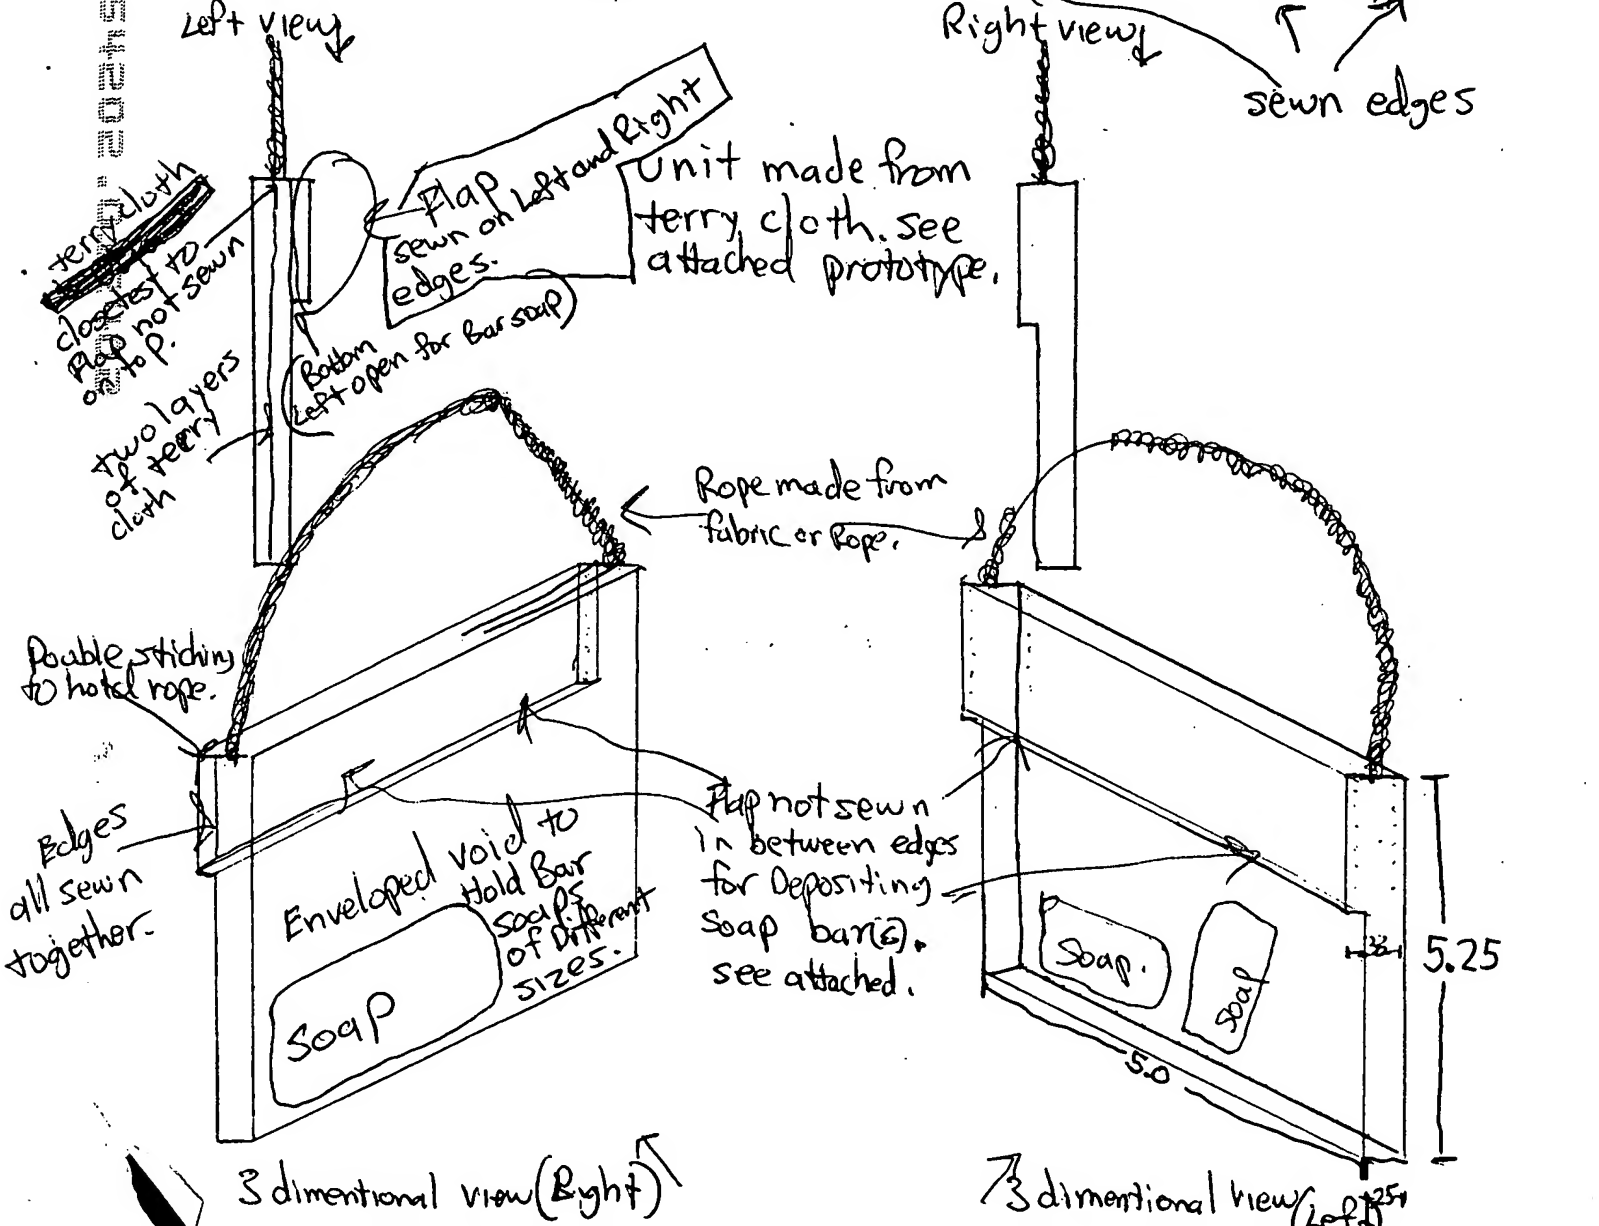 Left view
Right view
sewn edges
terry cloth
closetest to
Flap not sewn
on top.
Flap
sewn on Left and Right
edges.
Unit made from
terry cloth. see
attached prototype.
(Bottom
Left open for Bar soap)
two layers
of terry
cloth
Rope made from
fabric or Rope.
Double stiching
to hold rope.
Edges
all sewn
together.
Enveloped void to
Hold Bar
soaps
of Different
sizes.
Soap
Flap not sewn
in between edges
for Depositing
Soap bar(s).
see attached.
Soap.
Soap
5.25
5.0
.25
3 dimentional view (Right)
3 dimentional view
(Left)